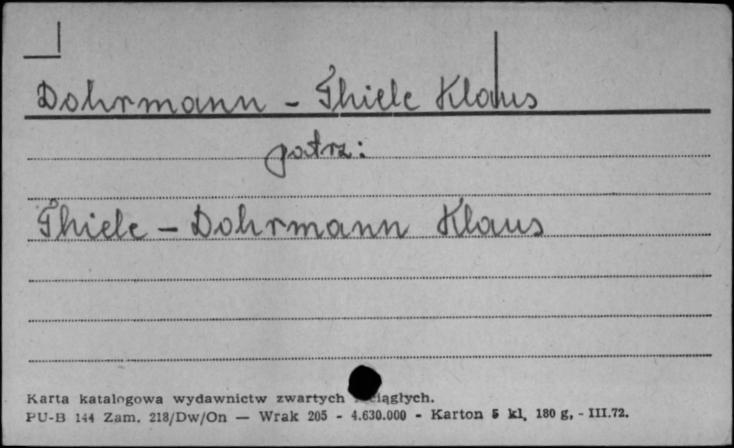 Dohrmann - Thiele Klaus
patrz:
Thiele - Dohrmann Klaus
Karta katalogowa wydawnictw zwartych ciągłych.
PU-B 144 Zam. 218/Dw/On — Wrak 205 - 4.630.000 - Karton 5 kl, 180 g, - III.72.